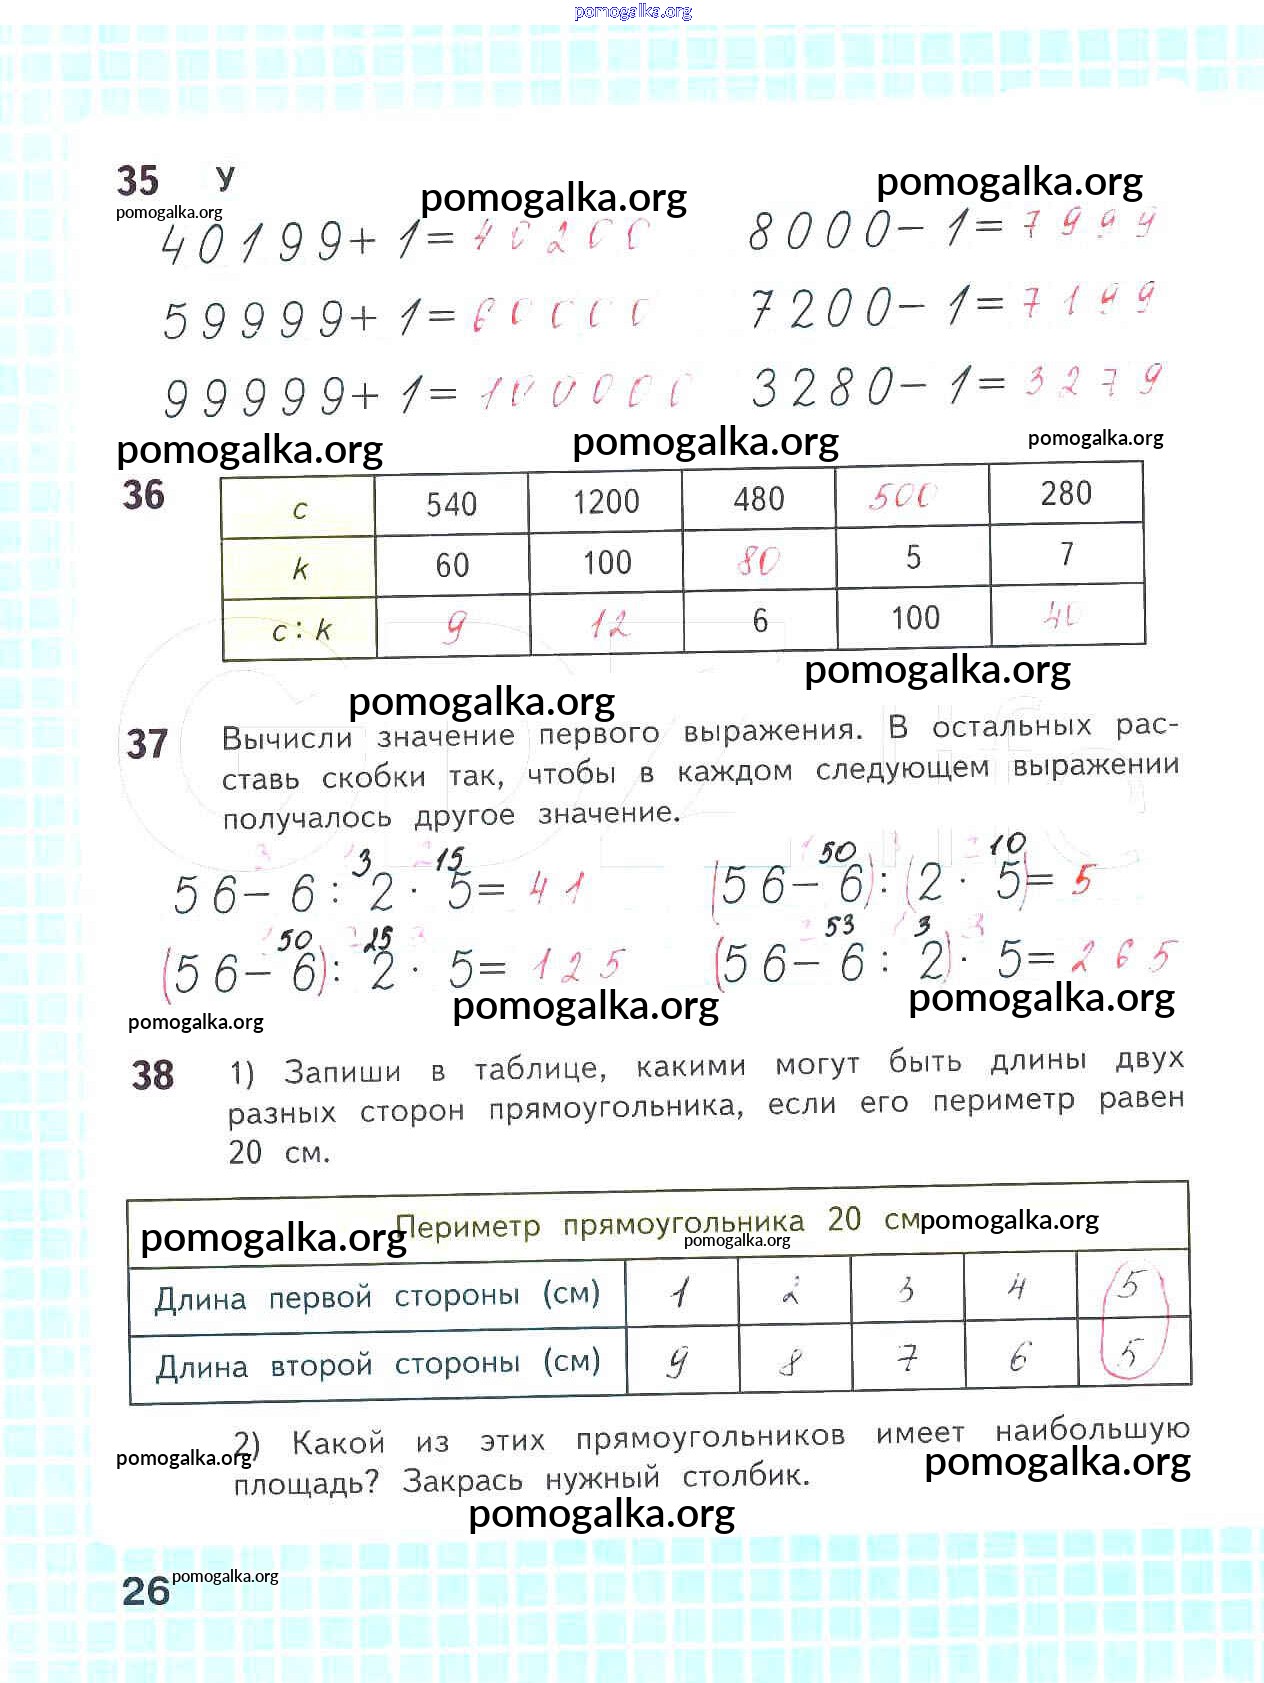 pomogalka.org
35 У
pomogalka.org pomogalka.org pomogalka.org
40199+1=40200 8000-1=7999
59999+1=60000 7200-1=7199
99999+1=100000 3280-1=3279
pomogalka.org pomogalka.org pomogalka.org
36
c 540 1200 480 500 280
k 60 100 80 5 7
c : k 9 12 6 100 40
pomogalka.org pomogalka.org
37 Вычисли значение первого выражения. В остальных рас-
ставь скобки так, чтобы в каждом следующем выражении
получалось другое значение.
3 15 50 10
56-6:2·5=41 (56-6):(2·5)=5
50 25 53 3
(56-6):2·5=125 (56-6:2)·5=265
pomogalka.org pomogalka.org pomogalka.org
38 1) Запиши в таблице, какими могут быть длины двух
разных сторон прямоугольника, если его периметр равен
20 см.
Периметр прямоугольника 20 см
pomogalka.org pomogalka.org pomogalka.org
Длина первой стороны (см) 1 2 3 4 5
Длина второй стороны (см) 9 8 7 6 5
2) Какой из этих прямоугольников имеет наибольшую
площадь? Закрась нужный столбик.
pomogalka.org pomogalka.org
pomogalka.org
26 pomogalka.org